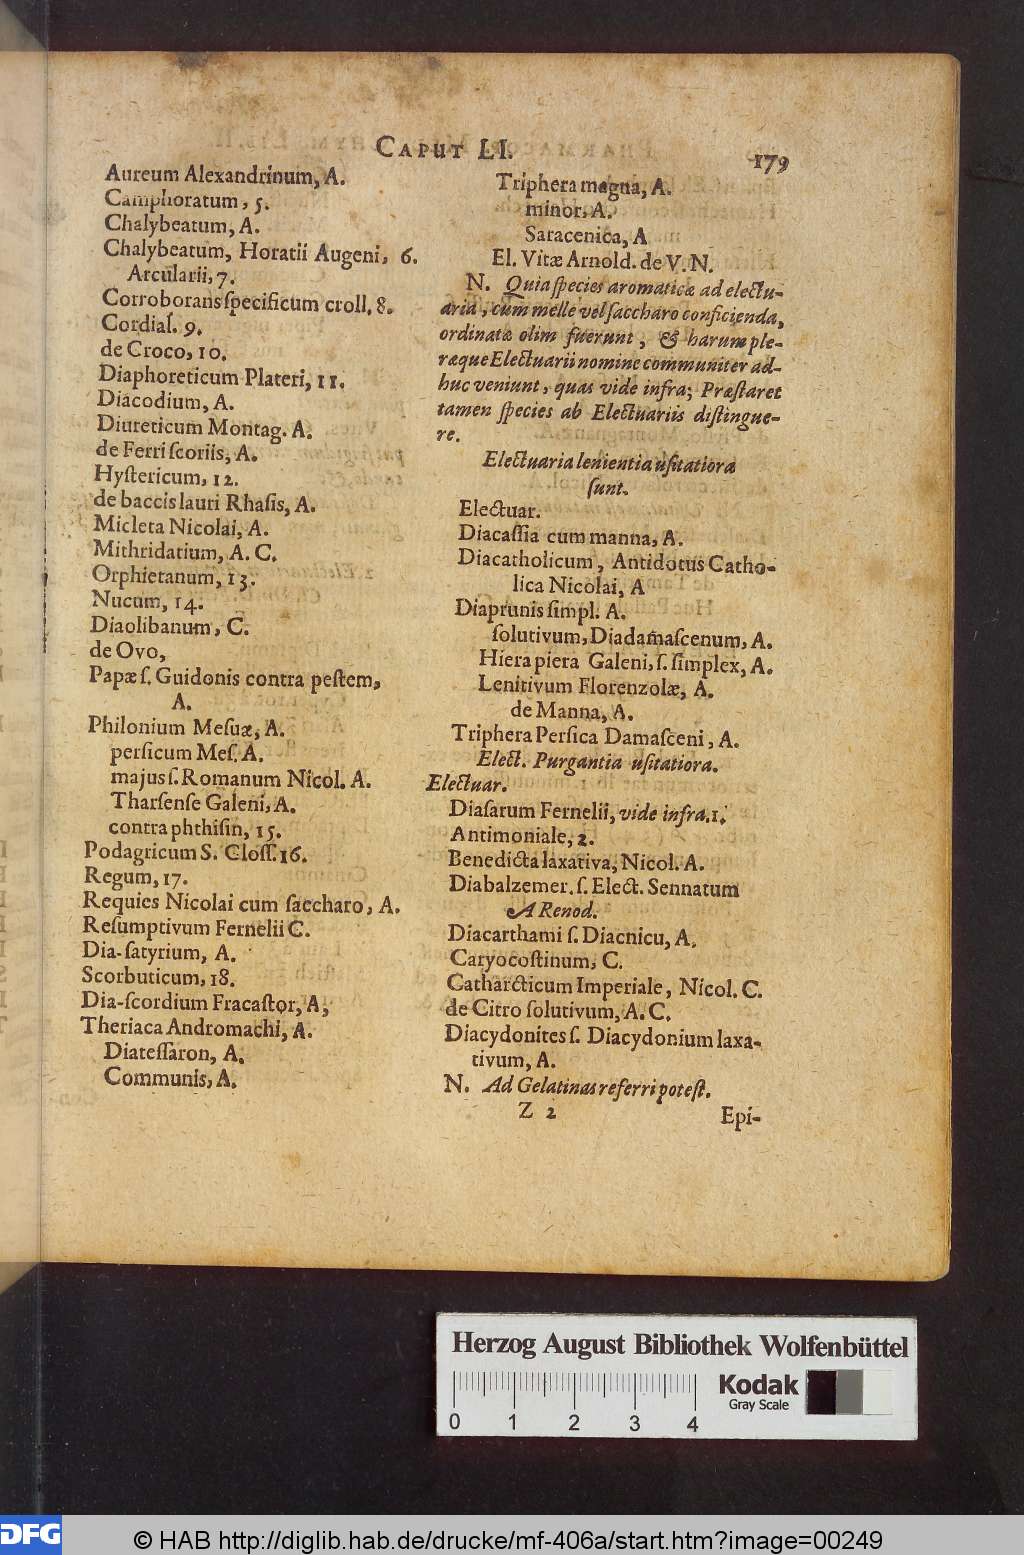 CAPUT LI.
179
Aureum Alexandrinum, A.
Camphoratum, 5.
Chalybeatum, A.
Chalybeatum, Horatii Augeni, 6.
Arcularii, 7.
Corroborans ſpecificum croll. 8.
Cordial. 9.
de Croco, 10.
Diaphoreticum Plateri, 11.
Diacodium, A.
Diureticum Montag. A.
de Ferri ſcoriis, A.
Hyſtericum, 12.
de baccis lauri Rhaſis, A.
Micleta Nicolai, A.
Mithridatium, A. C.
Orphietanum, 13.
Nucum, 14.
Diaolibanum, C.
de Ovo,
Papæ ſ. Guidonis contra peſtem,
A.
Philonium Meſuæ, A.
perſicum Meſ. A.
majus ſ. Romanum Nicol. A.
Tharſenſe Galeni, A.
contra phthiſin, 15.
Podagricum S. Cloſſ. 16.
Regum, 17.
Requies Nicolai cum ſaccharo, A.
Reſumptivum Fernelii C.
Dia-ſatyrium, A.
Scorbuticum, 18.
Dia-ſcordium Fracaſtor, A,
Theriaca Andromachi, A.
Diateſſaron, A.
Communis, A.
Triphera magna, A.
minor, A.
Saracenica, A
El. Vitæ Arnold. de V. N.
N. Quia ſpecies aromaticæ ad electu-
aria, cum melle vel ſaccharo conficienda,
ordinatæ olim fuerunt, & harum ple-
ræque Electuarii nomine communiter ad-
huc veniunt, quas vide infra; Præſtaret
tamen ſpecies ab Electuariis diſtingue-
re.
Electuaria lenientia uſitatiora
ſunt.
Electuar.
Diacaſſia cum manna, A.
Diacatholicum, Antidotus Catho-
lica Nicolai, A
Diaprunis ſimpl. A.
ſolutivum, Diadamaſcenum, A.
Hiera piera Galeni, ſ. ſimplex, A.
Lenitivum Florenzolæ, A.
de Manna, A.
Triphera Perſica Damaſceni, A.
Elect. Purgantia uſitatiora.
Electuar.
Diaſarum Fernelii, vide infra. 1.
Antimoniale, 2.
Benedicta laxativa, Nicol. A.
Diabalzemer. ſ. Elect. Sennatum
A Renod.
Diacarthami ſ. Diacnicu, A.
Caryocoſtinum, C.
Catharcticum Imperiale, Nicol. C.
de Citro ſolutivum, A. C.
Diacydonites ſ. Diacydonium laxa-
tivum, A.
N. Ad Gelatinas referri poteſt.
Z 2
Epi-
Herzog August Bibliothek Wolfenbüttel
Kodak
Gray Scale
0 1 2 3 4
DFG
© HAB http://diglib.hab.de/drucke/mf-406a/start.htm?image=00249